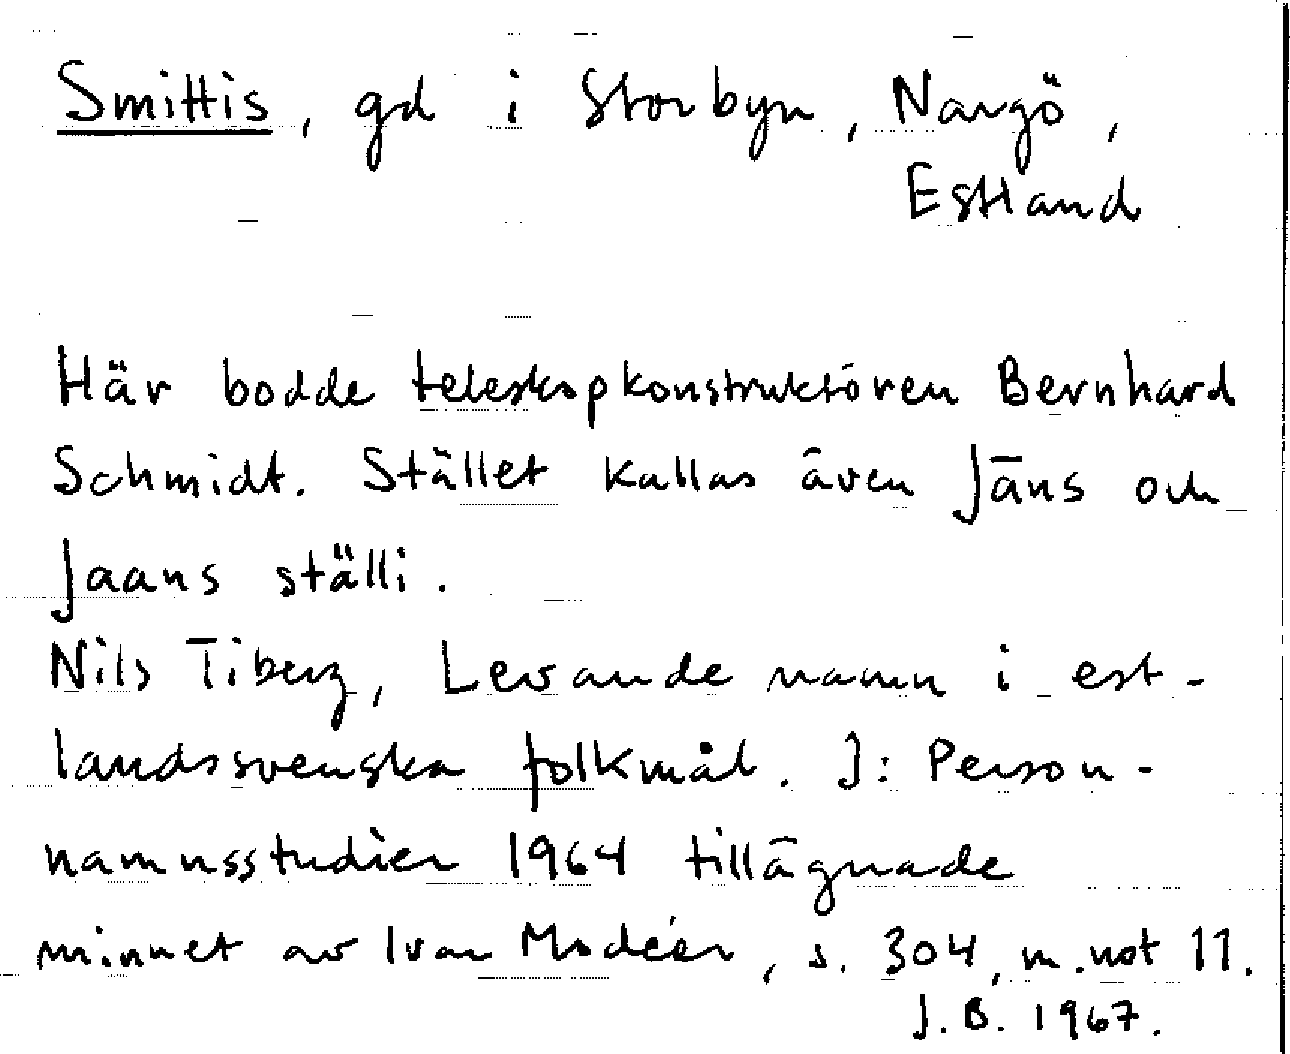 Smittis, gd i Storbyn, Nargö,
Estland
Här bodde teleskopkonstruktören Bernhard
Schmidt. Stället kallas även Jāns och
Jaans ställi.
Nils Tiberg, Levande namn i est-
landssvenska folkmål. I: Person-
namnsstudier 1964 tillägnade
minnet av Ivar Modéer, s. 304, m. not 11.
J.B. 1967.